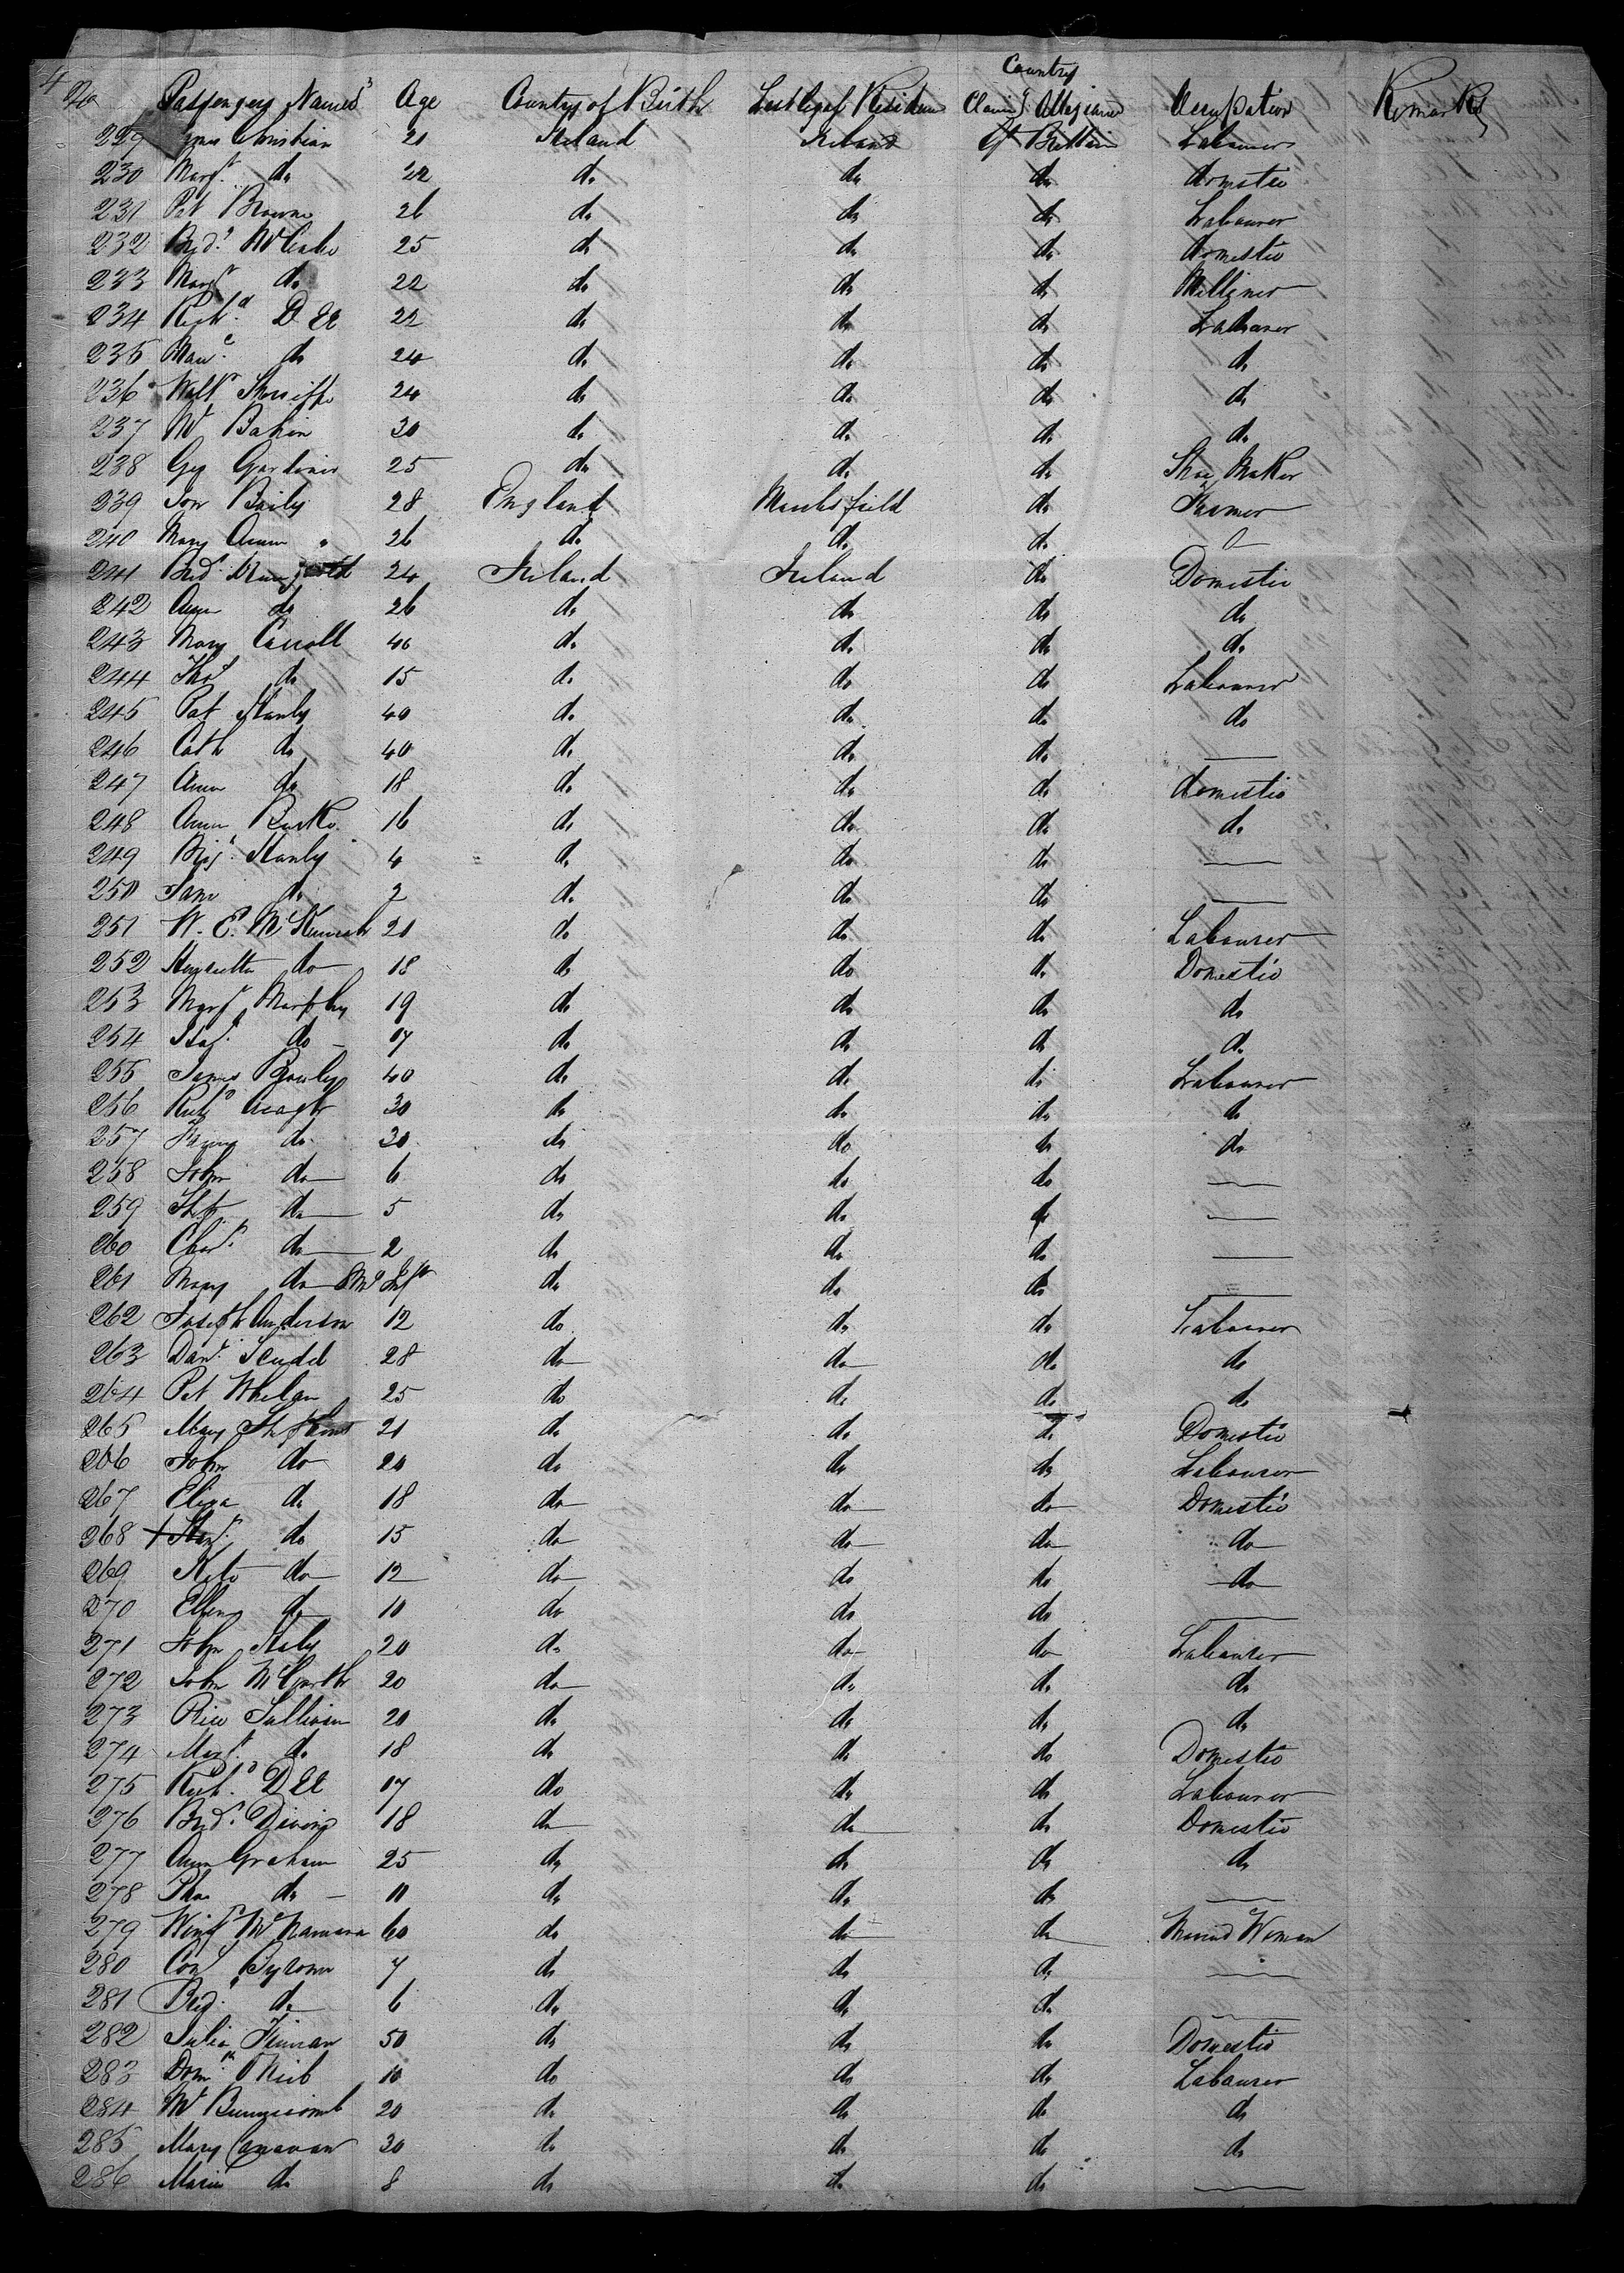 4
No Passengers Names Age Country of Birth Last Legal Residence Country Claiming Allegiance Occupation Remarks
229 Christian 21 Ireland Ireland Gt Brittain Labourer
230 Margt do 22 do do do domestic
231 Pat Browne 26 do do do Labourer
232 Brjd. McCabe 25 do do do domestic
233 Margt do 22 do do do Milliner
234 Richd. DEE 22 do do do Labourer
235 Mau. do 24 do do do do
236 Walt 24 do do do do
237 Mt 30 do do do do
238 Geo Gardiner 25 do do do Shoe Maker
239 Jon Baily 28 England do Farmer
240 Mary Ann " 26 do do do
241 Brd. 24 Ireland Ireland do Domestic
242 Ann do 26 do do do do
243 Mary Carroll 40 do do do do
244 Thos do 15 do do do Labourer
245 Pat Stanly 40 do do do do
246 Cath do 40 do do do —
247 Ann do 18 do do do domestic
248 Ann Burke 16 do do do do
249 Brjt. Stanly 4 do do do —
250 Jane do 2 do do do —
251 W. E. Mc 21 do do do Labourer
252 Henrietta do 18 do do do Domestic
253 Margt Murphy 19 do do do do
254 Isa. do 17 do do do do
255 James 40 do do do Labourer
256 Richd 30 do do do do
257 Fanny do 30 do do do do
258 John do 6 do do do —
259 do 5 do do do —
260 Chas. do 2 do do do —
261 Mary do 8 Mo Inft do do do —
262 Joseph Anderson 12 do do do Labourer
263 Danl. 28 do do do do
264 Pat Whelan 25 do do do do
265 Mary Stephens 21 do do do Domestic
266 John do 20 do do do Labourer
267 Eliza do 18 do do do Domestic
268 do 15 do do do do
269 Kate do 12 do do do do
270 Ellen do 10 do do do —
271 John 20 do do do Labourer
272 John McCarth 20 do do do do
273 Rice Sullivan 20 do do do do
274 Margt. do 18 do do do Domestic
275 Richd. DEE 17 do do do Labourer
276 Brd. Divine 18 do do do Domestic
277 Ann Graham 25 do do do do
278 do 11 do do do —
279 Wind McNamara 60 do do do Married Woman
280 Con 7 do do do —
281 Brd. do 6 do do do —
282 Julia 50 do do do Domestic
283 Domk. 10 do do do Labourer
284 Mt 20 do do do do
285 Mary Canavan 30 do do do do
286 Maria do 8 do do do —